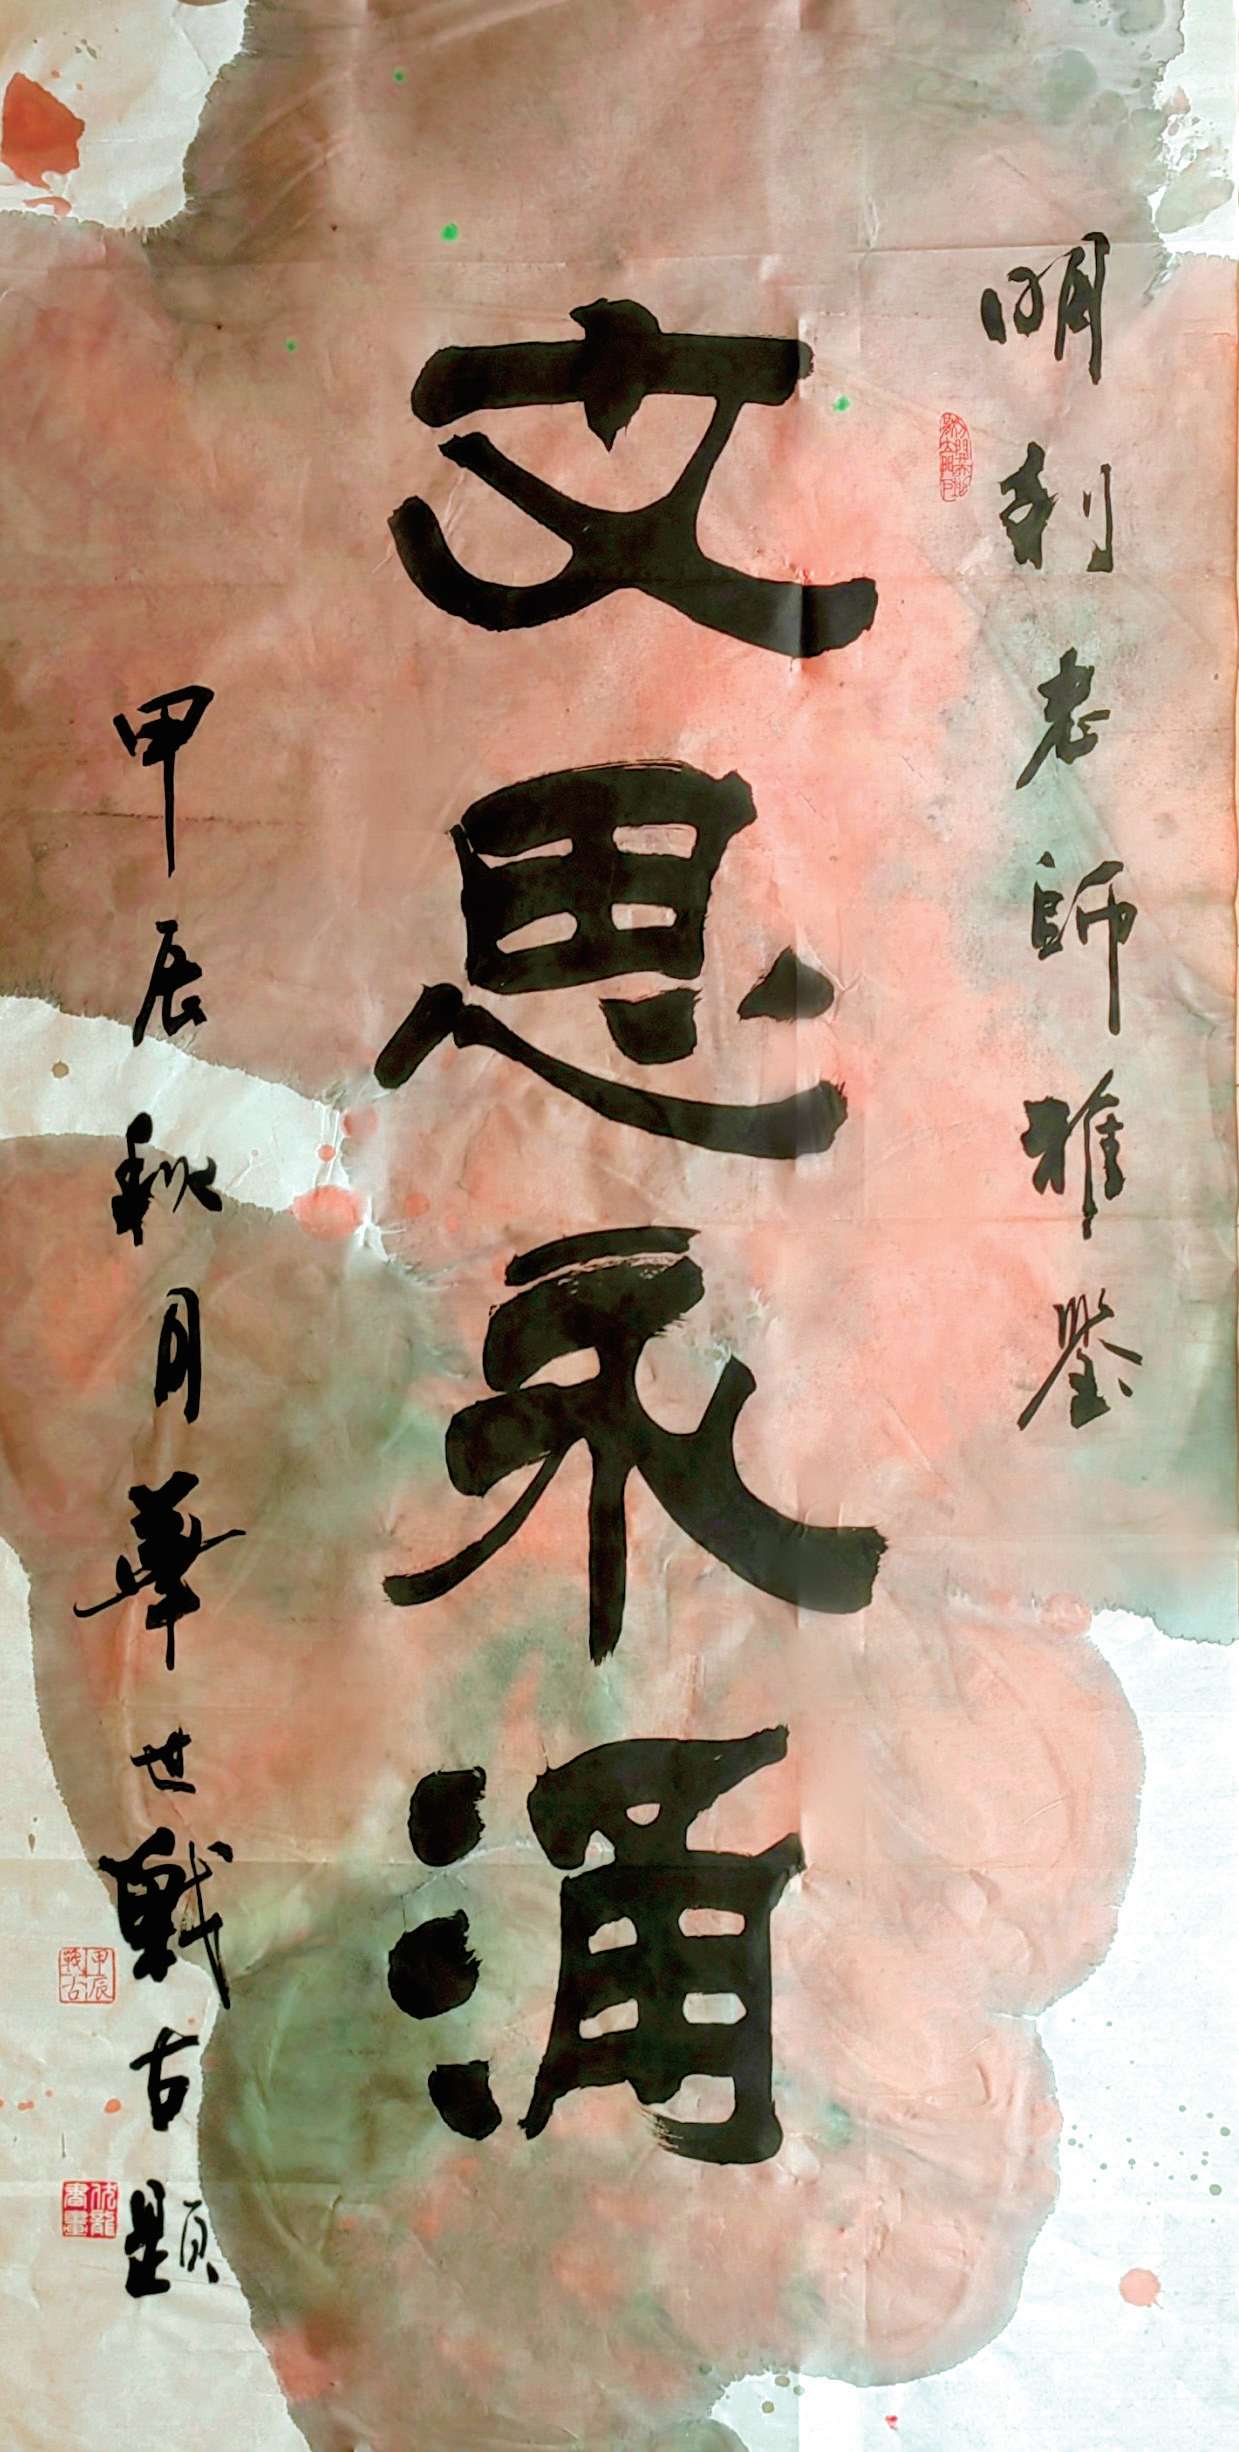 明利老師雅鑒
文思永涌
甲辰秋月華世戰古題
甲辰